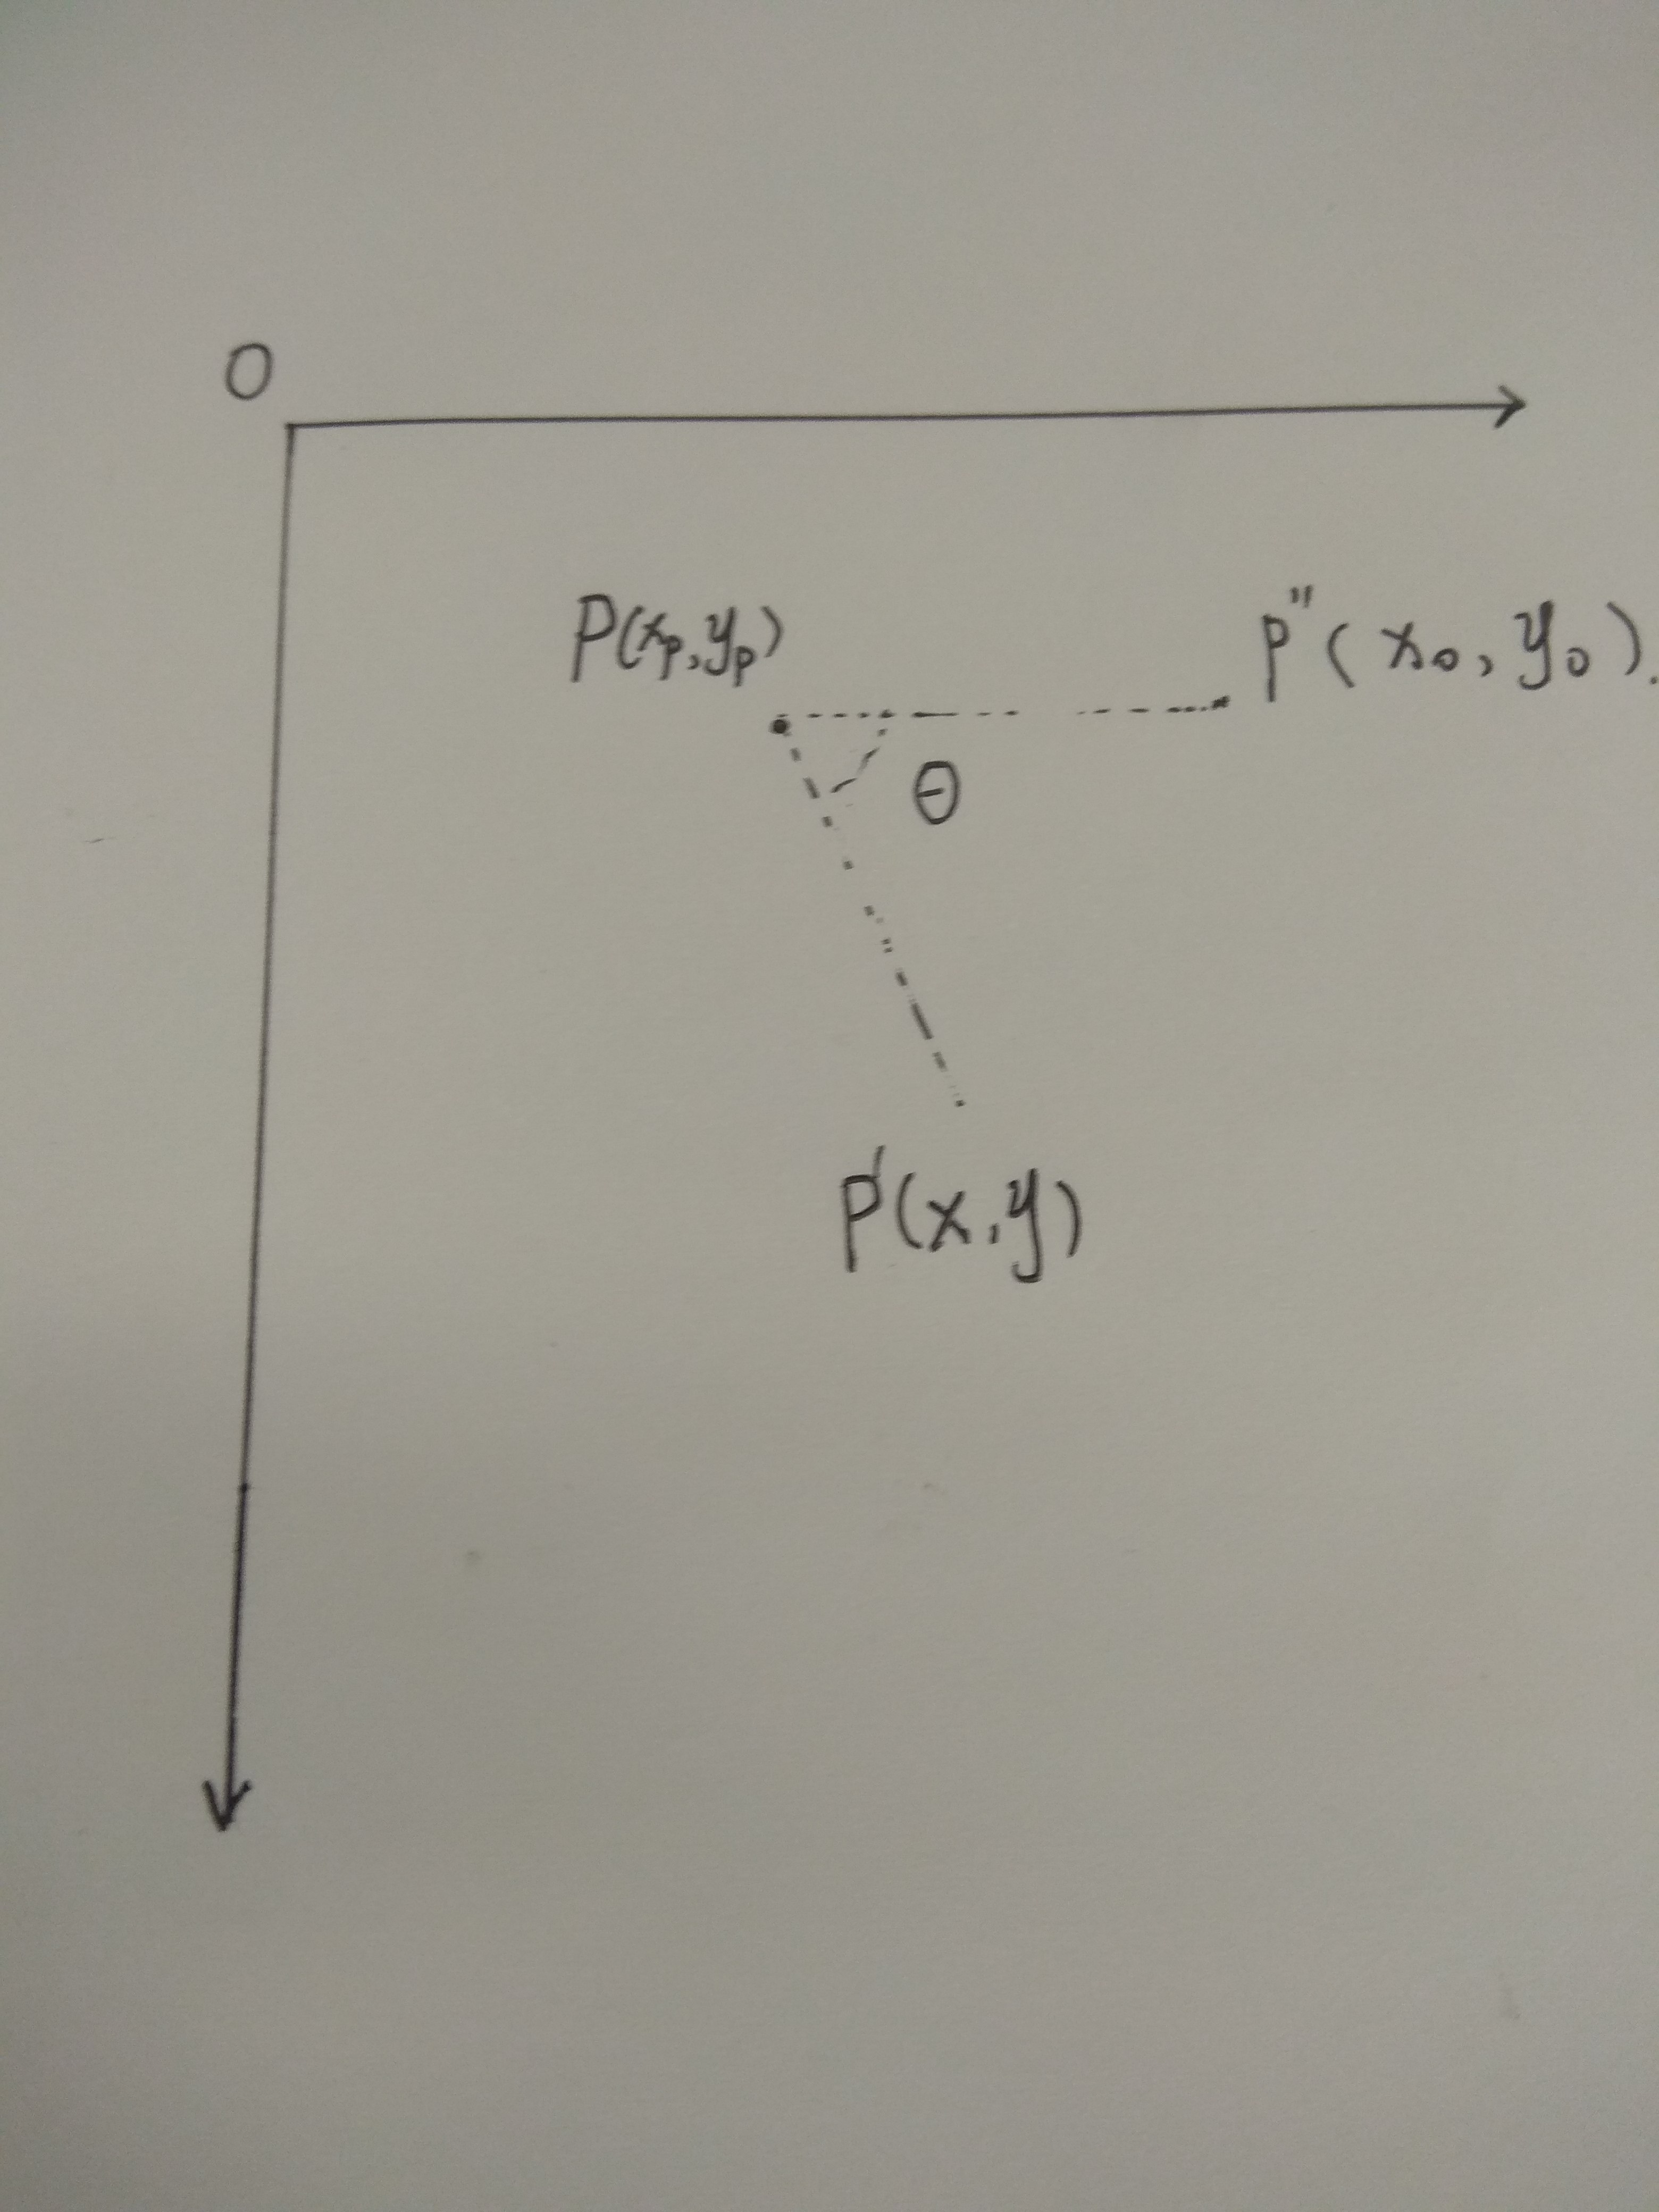 O
P(xₚ,yₚ)
P"(x₀,y₀).
θ
P'(x,y)